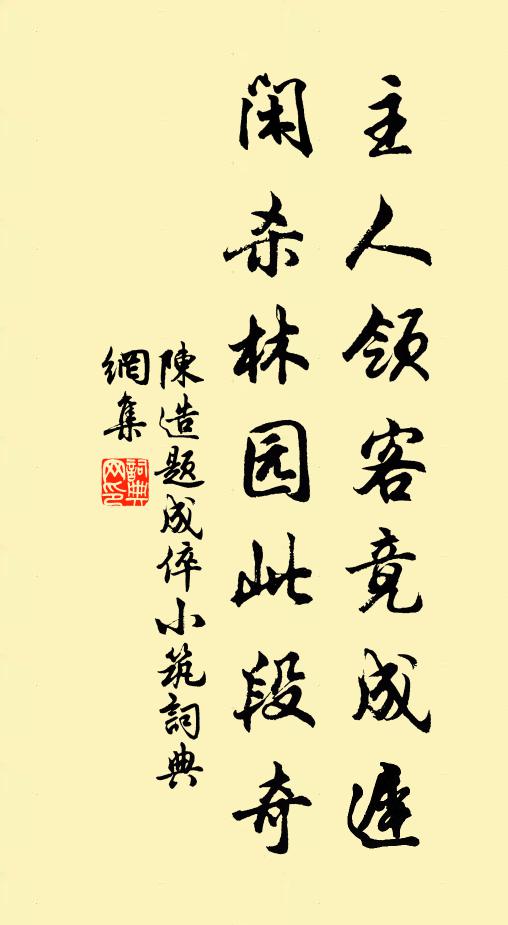 主人领客竟成遲
闲杀林园此段奇
陳造题成倅小筑詞典
網集
詞典
网印